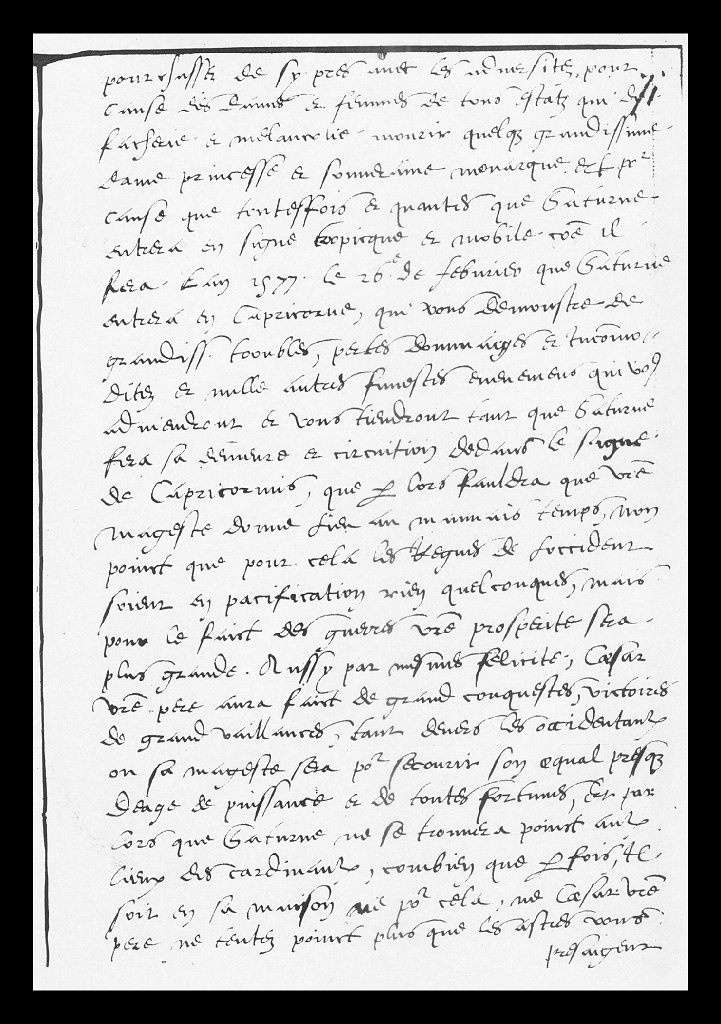 pour chasser de sy pres avec les adversitez, pour
cause des dames et femmes de tous estatz qui de
facherie et melancolie mourir quelq grandissime
dame princesse et souveraine monarque, Et pr
cause que touteffois et quantes que Saturne
entrera en signe tropicque et mobile coe il
fera Lan 1577 le 26e de febvrier que Saturne
entrera en Capricorne, qui vous demonstre de
grandiss. troubles, pertes dommaiges et incommo-
ditez et mille autres funestes evenemens qui vos
adviendront et vous tiendront tant que Saturne
fera sa demeure et circuition dedans le signe
de Capricornus, que p lors fauldra que vre
mageste donne lieu au mauvais temps, non
poinct que pour cela les Regnes de loccident
soient en pacification rien quelconques, mais
pour le faict des guerres vre prosperite sera
plus grande. Aussy par mesmes felicite, Cæsar
vre pere aura faict de grand conquestes, victoires
de grand vaillances, tant devers les occidentaux
ou sa mageste sera pr secourir son æqual presq
deage de puissance et de toutes fortunes, Et par
lors que Saturne ne se trouvera poinct aux
lieux des cardinaux, combien que p fois, Il
soit en sa maison ne pr cela, ne Cæsar vre
pere ne tentez poinct plus que les astres vous
presaigent